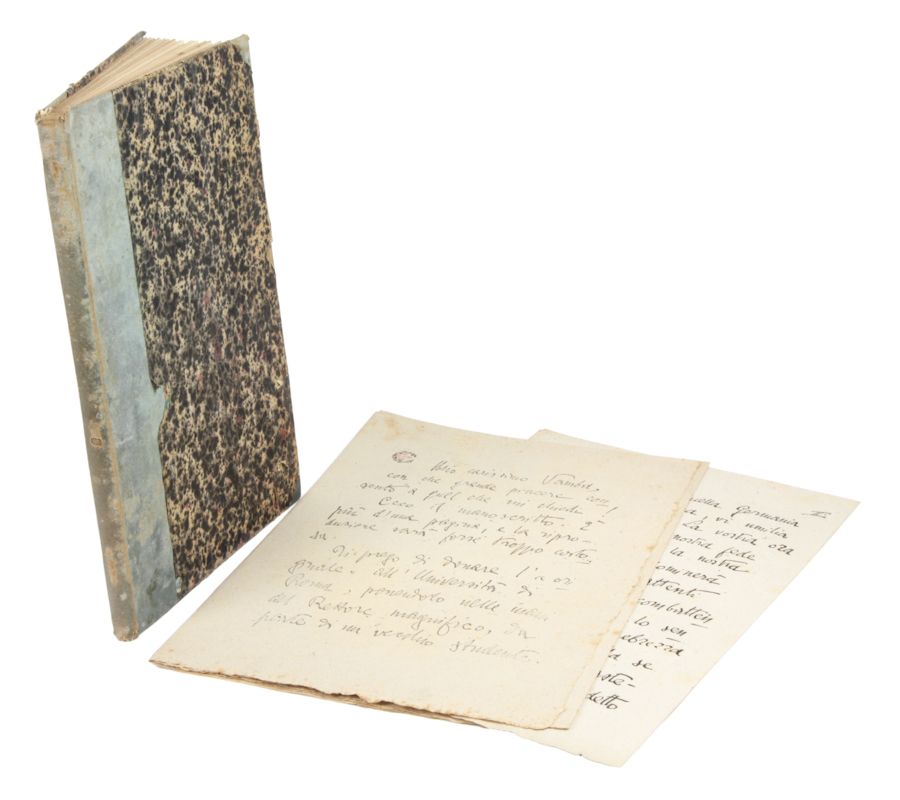 Mio carissimo Vamba,
con che grande piacere con
sento a quel che mi chiedi!
Ecco il manoscritto. È
più d'una pagina; e la ripro-
duzione sarà forse troppo costo
sa.
Ti prego di donare l'ori
ginale all'Università di
Roma, ponendolo nelle mani
del Rettore magnifico, da
parte di un vecchio studente.
II
quella Germania
vi umilia
La vostra ora
nostra fede
la nostra
combatten
lo sen
ebrezza
se
detto